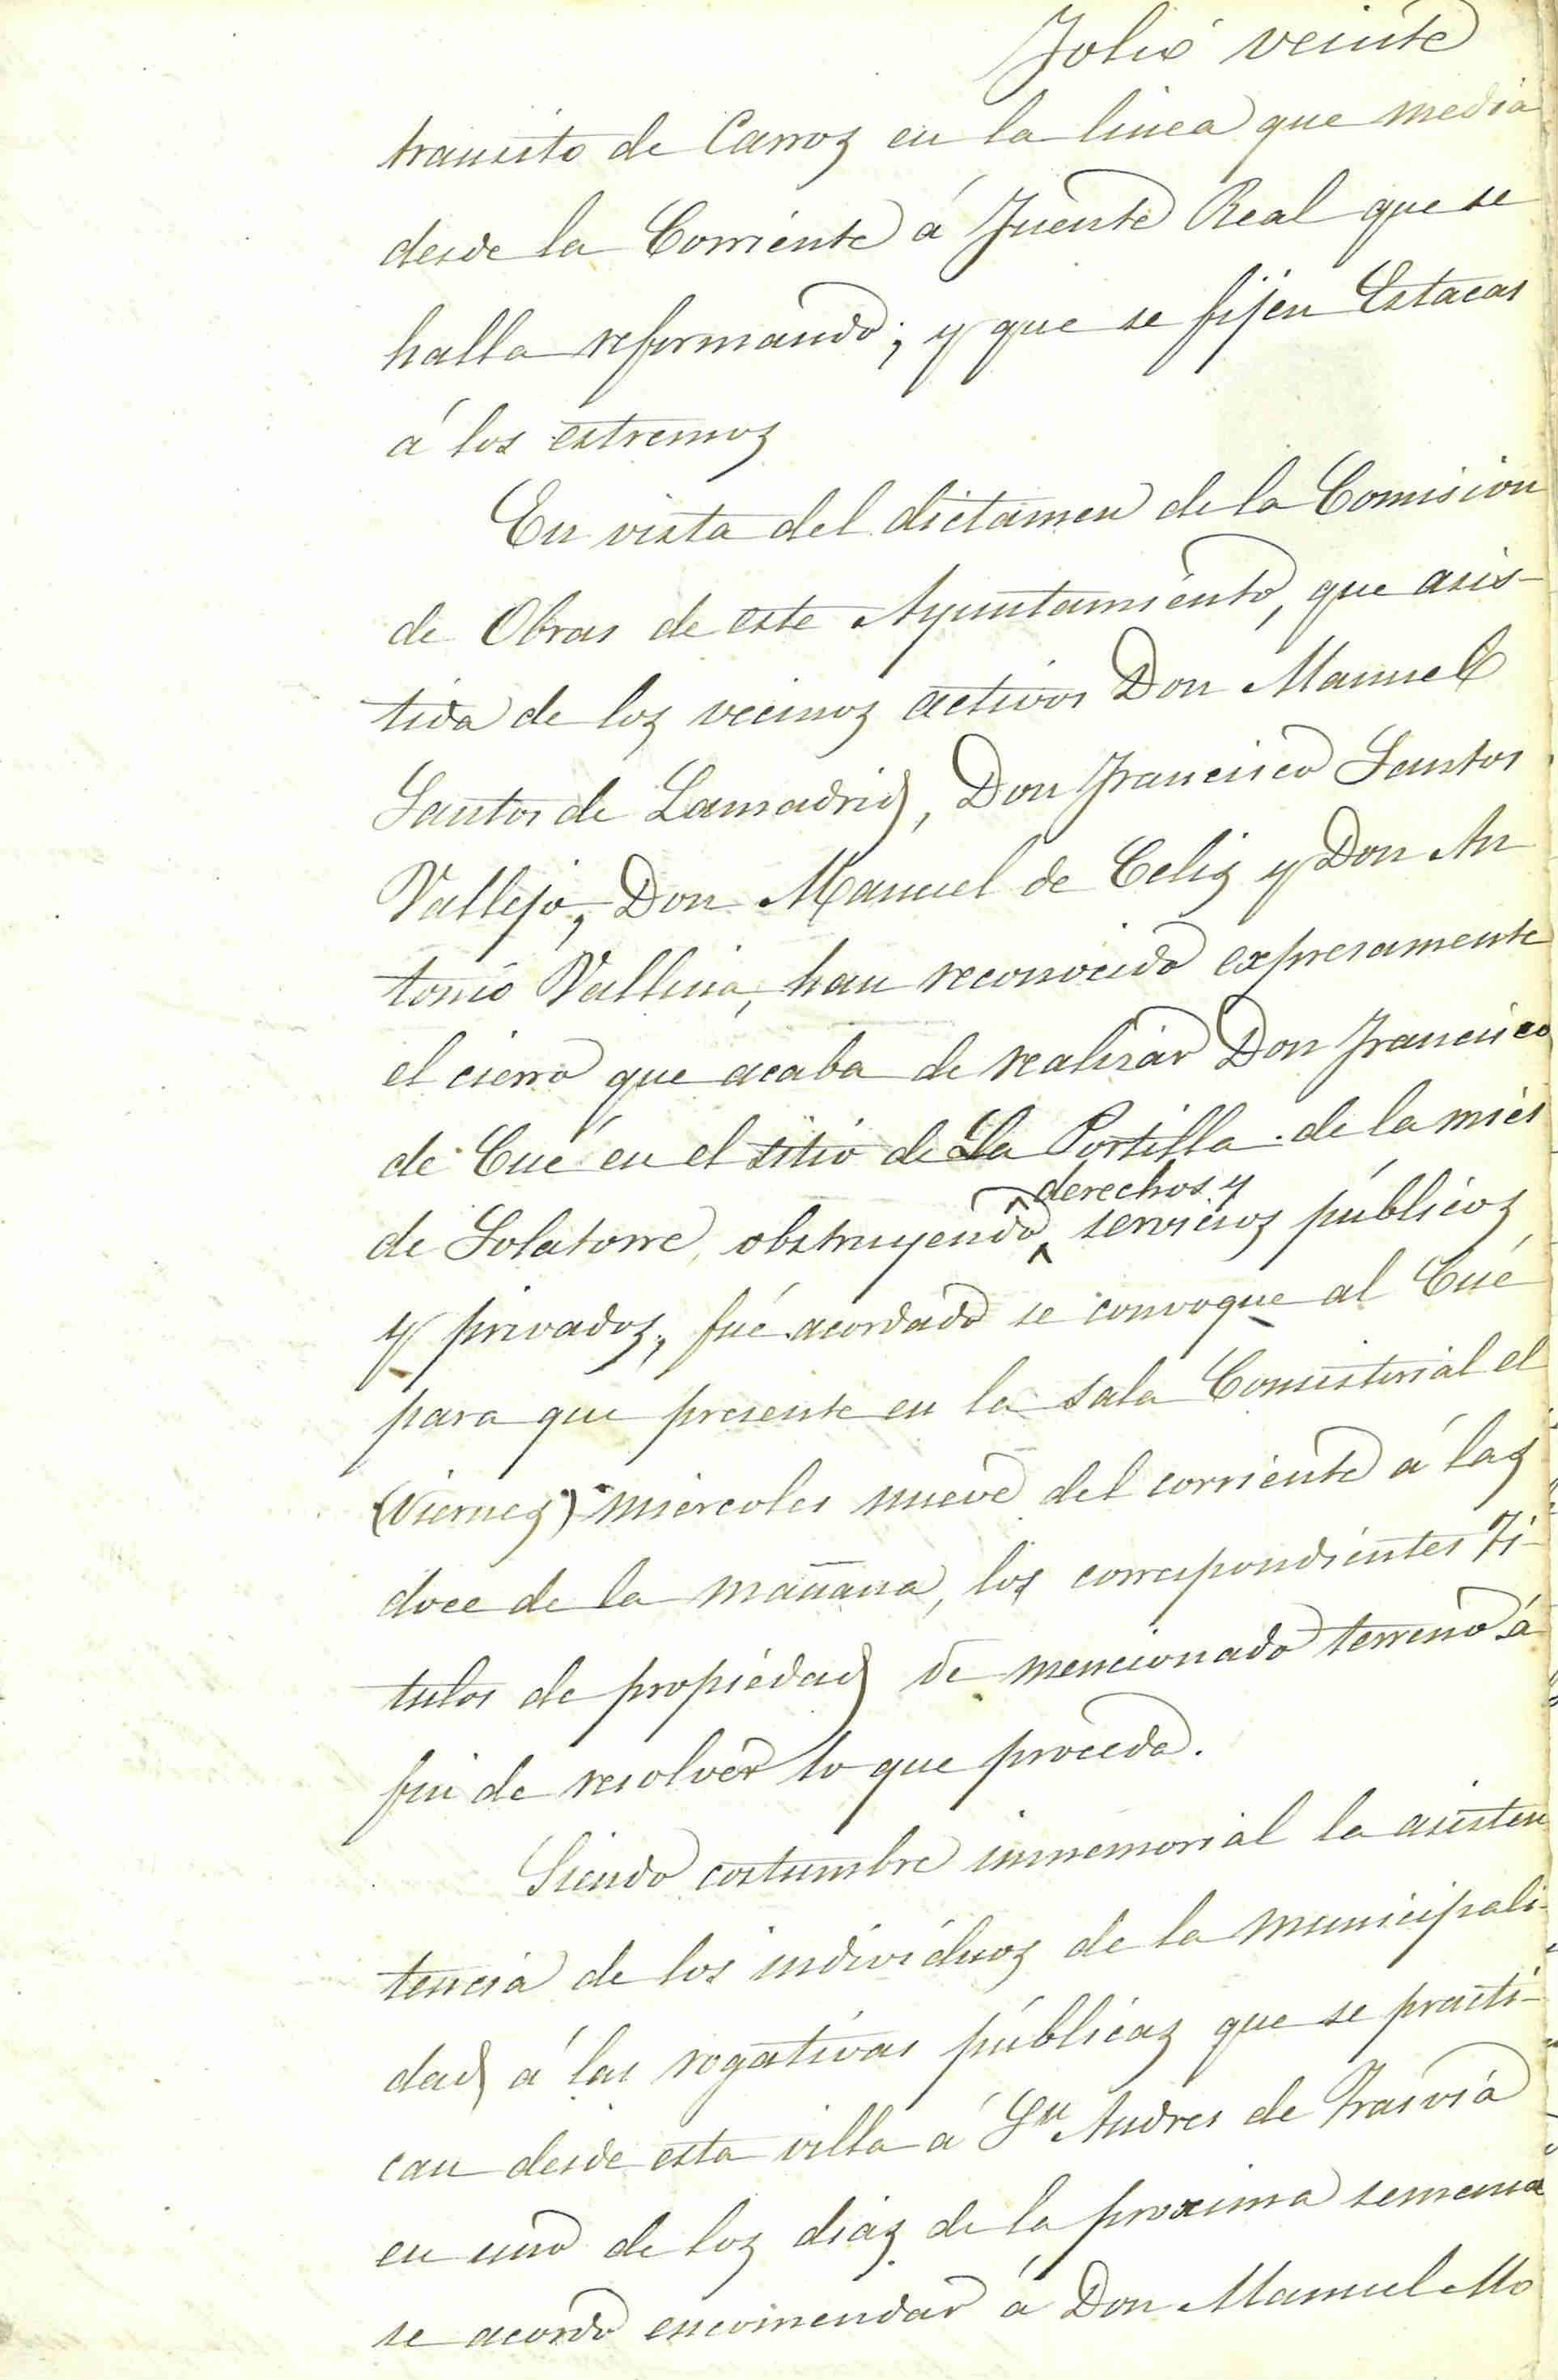 Folio veinte
transito de Carros en la linea que media
desde la Corriente á Fuente Real que se
halla reformando; y que se fijen Estacas
á los estremos
En vista del dictamen de la Comision
de Obras de este Ayuntamiento, que asis-
tida de los vecinos activos Don Manuel
Santos de Lamadrid, Don Francisco Santos
Vallejo, Don Manuel de Celis y Don An
tonio Vallina, han reconocido expresamente
el cierro que acaba de realizar Don Francisco
de Cué en el sitio de La Portilla de la mies
derechos y
de Solatorre, obstruyendo servicios públicos
y privados, fué acordado se convoque al Cué
para que presente en la sala Consistorial el
(Viernes) miercoles nueve del corriente á las
doce de la mañana, los correspondientes Ti-
tulos de propiedad de mencionado terreno á
fin de resolver lo que proceda.
Siendo costumbre inmemorial la asisten
tencia de los individuos de la municipali-
dad á las rogativas públicas que se practi-
can desde esta villa á Sn Andres de Trasvia
en uno de los dias de la proxima semana
se acordo encomendar á Don Manuel Mo